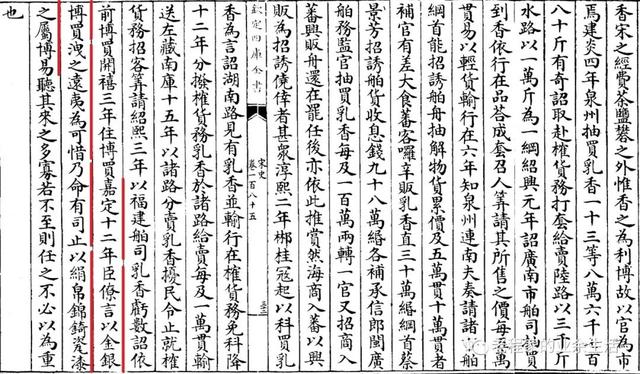 香宋之經費茶鹽礬之外惟香之為利博故以官為市
焉建炎四年泉州抽買乳香一十三等八萬六千七百
八十斤有奇詔取赴榷貨務打套給賣陸路以三千斤
水路以一萬斤為一綱紹興元年詔廣南市舶司抽買
到香依行在品答成套召人算請其所售之價每五萬
貫易以輕貨輸行在六年知泉州連南夫奏請諸市舶
綱首能招誘舶舟抽解物貨累價及五萬貫十萬貫者
補官有差大食蕃客囉辛販乳香直三十萬緡綱首蔡
景芳招誘舶貨收息錢九十八萬緡各補承信郎閩廣
舶務監官抽買乳香每及一百萬兩轉一官又招商入
蕃興販舟還在罷任後亦依此推賞然海商入蕃以興
欽定四庫全書
宋史
卷一百八十五
販為招誘僥倖者甚衆淳熙二年郴桂寇起以科買乳
香為言詔湖南路見有乳香並輸行在榷貨務免科降
十二年分撥榷貨務乳香於諸路給賣每及一萬貫輸
送左藏南庫十五年以諸路分賣乳香擾民令止就榷
貨務招客算請紹熙三年以福建舶司乳香虧數詔依
前博買開禧三年住博買嘉定十二年臣僚言以金銀
博買洩之遠夷為可惜乃命有司止以絹帛錦綺瓷漆
之屬博易聽其來之多寡若不至則任之不必以為重
也